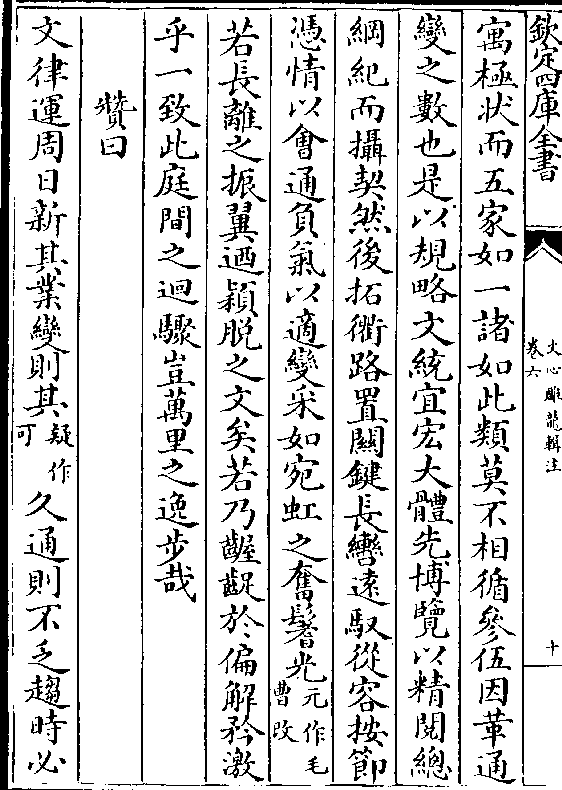 欽定四庫全書
文心雕龍輯注
卷六
十
寓極状而五家如一諸如此類莫不相循參伍因革通
變之數也是以規略文統宜宏大體先博覽以精閲總
綱紀而攝契然後拓衢路置關鍵長轡逺馭從容按節
憑情以會通負氣以適變采如宛虹之奮鬐光元作毛曹改
若長離之振翼迺穎脱之文矣若乃齷齪於偏解矜激
乎一致此庭間之迴驟豈萬里之逸步哉
賛曰
文律運周日新其業變則其疑作可久通則不乏趨時必